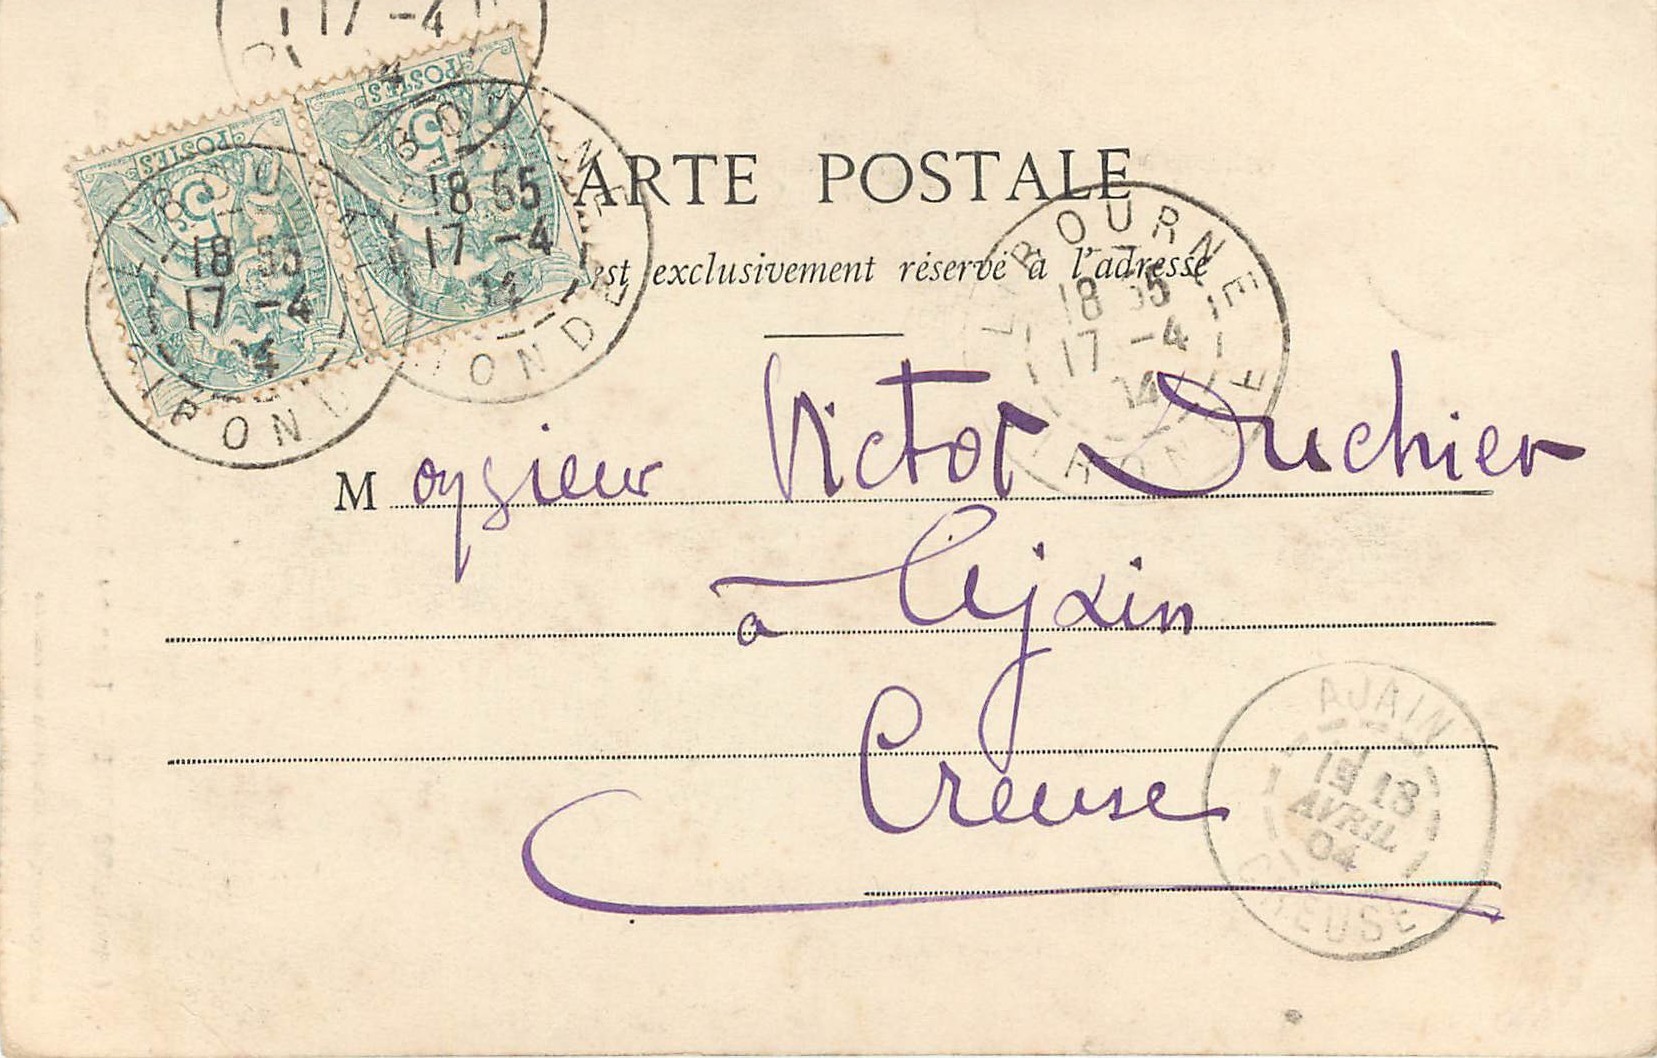 17 -4
POSTES
POSTES
5
5
LIBOURNE
18 55
17 -4
04
GIRONDE
LIBOURNE
18 55
17 -4
04
GIRONDE
ARTE POSTALE
est exclusivement réservé à l'adresse
LIBOURNE
18 55
17 -4
04
GIRONDE
Monsieur Victor Duchier
à Ajain
Creuse
AJAIN
18
AVRIL
04
CREUSE